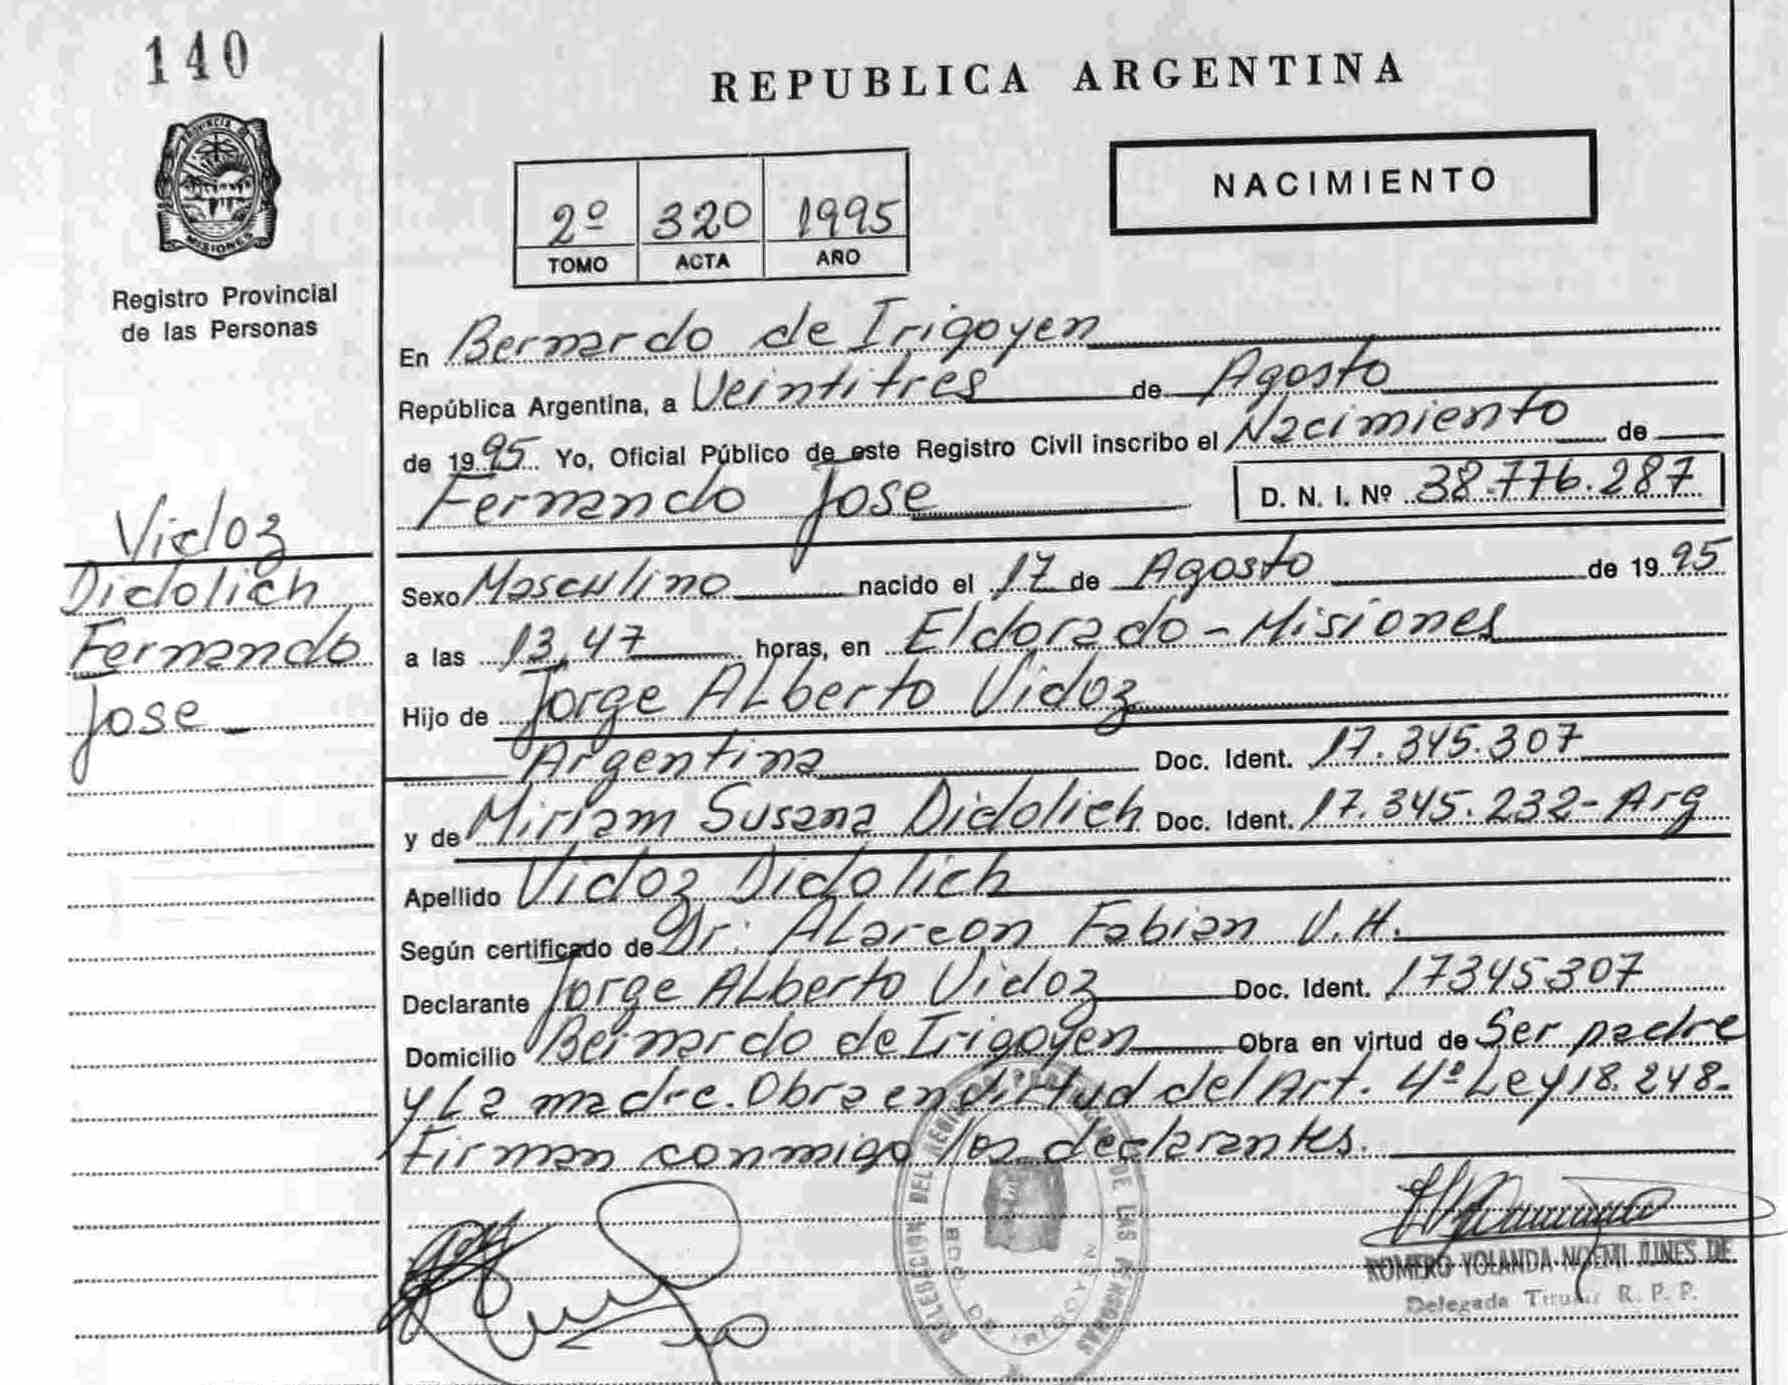 140
PROVINCIA DE
MISIONES
Registro Provincial
de las Personas
Vidoz
Didolich
Fernando
Jose
REPUBLICA ARGENTINA
NACIMIENTO
2º 320 1995
TOMO ACTA AÑO
En Bernardo de Irigoyen
República Argentina, a Veintitres de Agosto
de 1995 Yo, Oficial Público de este Registro Civil inscribo el Nacimiento de
Fernando Jose D. N. I. Nº 38.776.287
Sexo Masculino nacido el 17 de Agosto de 1995
a las 13,47 horas, en Eldorado - Misiones
Hijo de Jorge ALberto Vidoz
Argentina Doc. Ident. 17.345.307
y de Miriam Susana Didolich Doc. Ident. 17.345.232- Arg
Apellido Vidoz Didolich
Según certificado de Dr: ALarcon Fabian V.H.
Declarante Jorge ALberto Vidoz Doc. Ident. 17345307
Domicilio Bernardo de Irigoyen Obra en virtud de Ser padre
y La madre. Obra en virtud del Art. 4º Ley 18.248.
Firman conmigo los declarantes.
DELEGACION DEL REGISTRO DE LAS PERSONAS
BDO. DE IRIGOYEN
ROMERO YOLANDA NOEMI DE
Delegada Titular R. P. P.